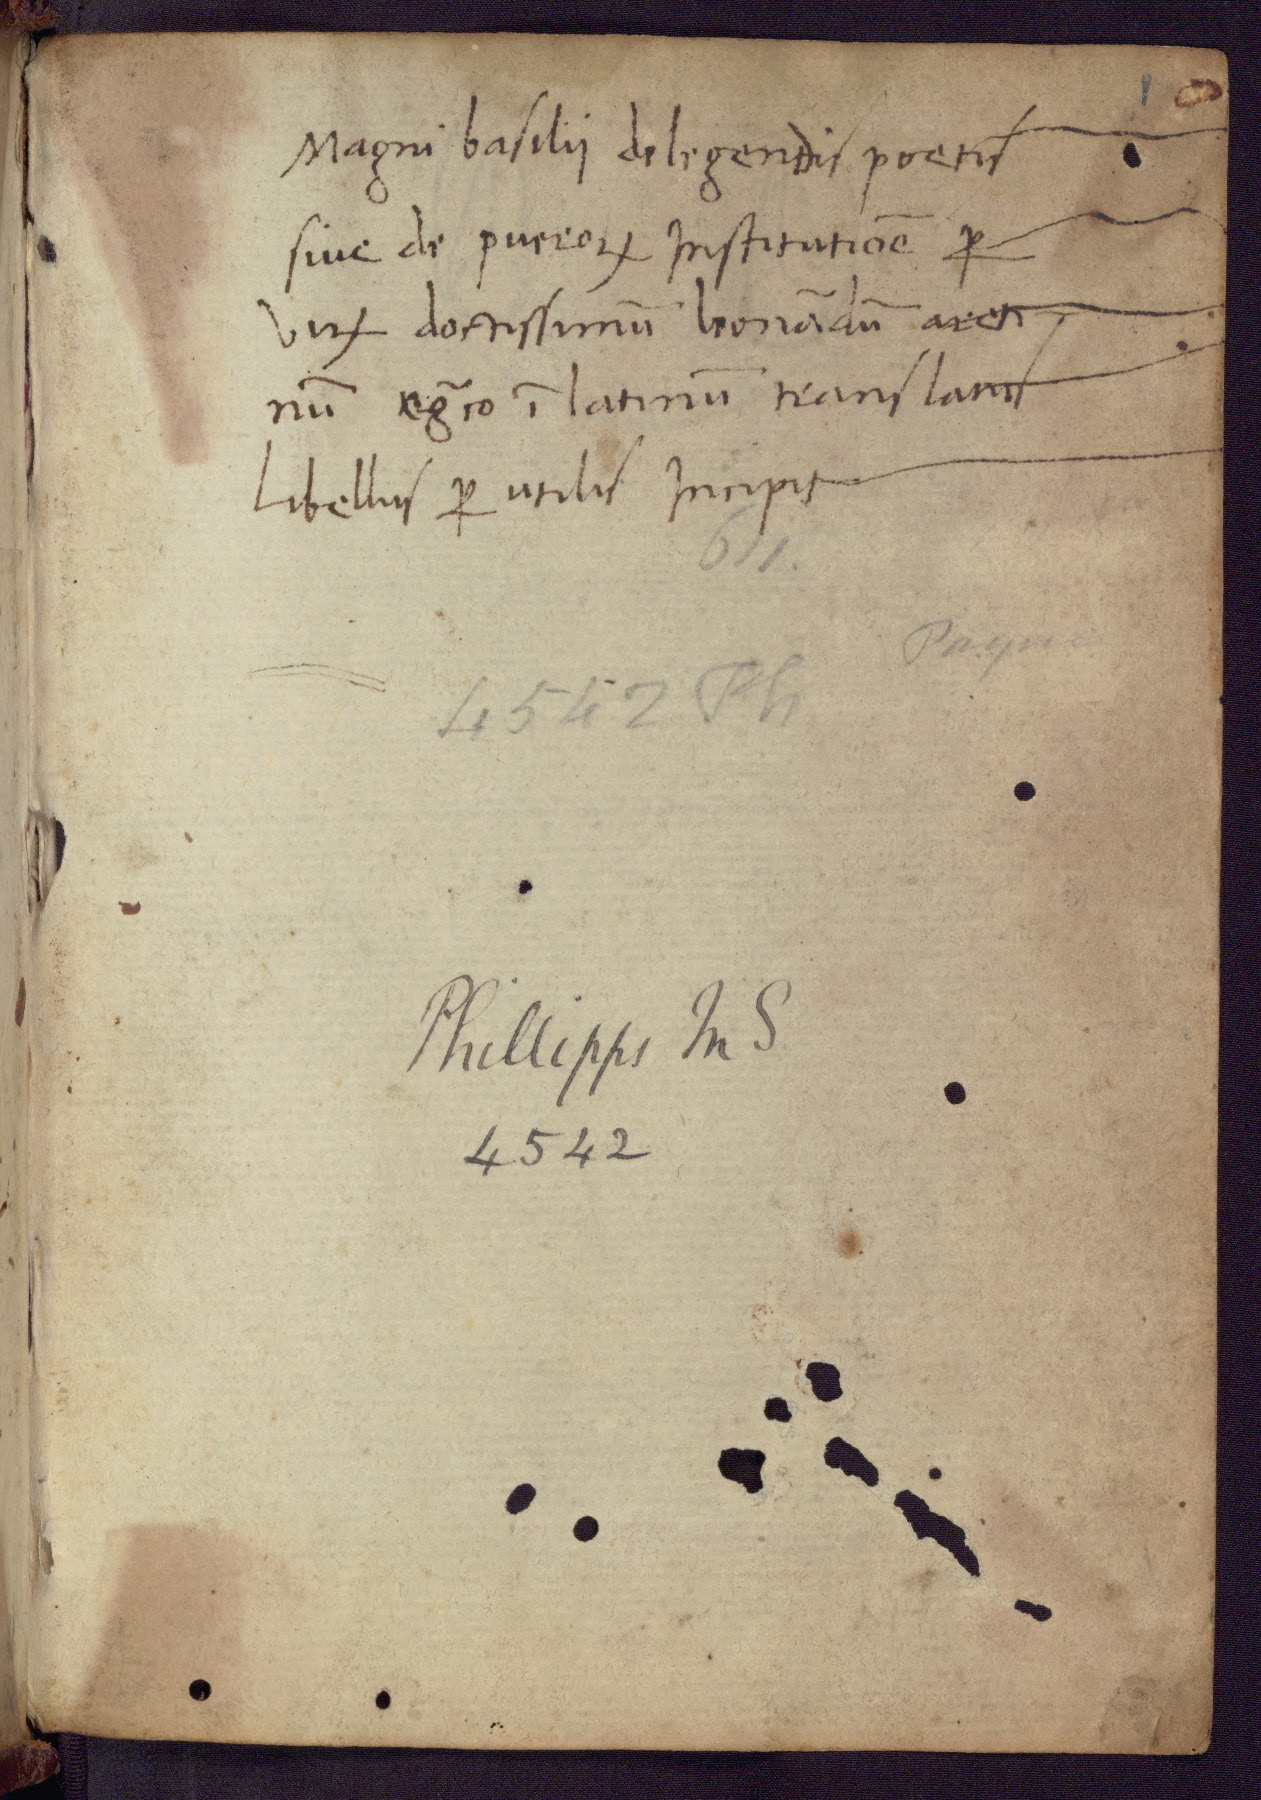 1
Magni basilii de legendis poetis
sive de pueroꝝ Institutiōe ꝑ
Virꝝ doctissimū leonādū areti
nū egr̄co ī latinū translatus
Libellus ꝑ utilis Incipit
611.
Payne
4542 Ph
Phillipps MS
4542